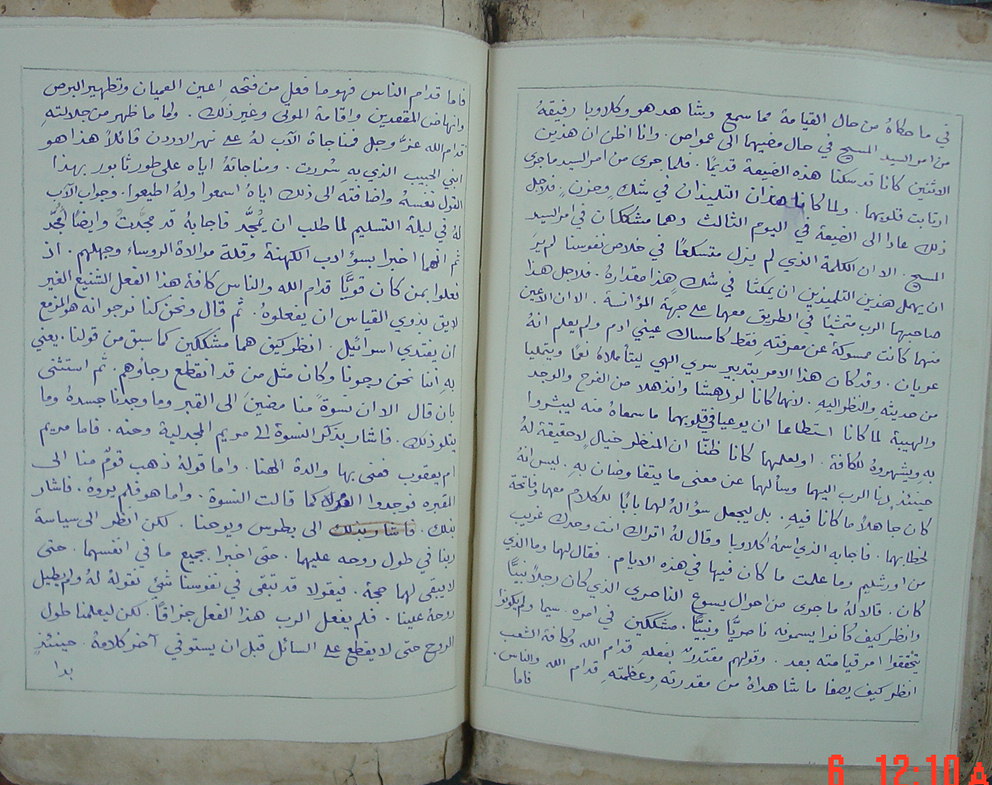 في ما حكاهُ من حال القيامة مما سمع وشاهد هو وكلاوبا رفيقهُ
من امر السيد المسيح في حال مضيهما الى عمواص. وانا اظن ان هذين
الاثنين كانا قد سكنا هذه الضيعة قديمًا. فلما جرى من امر السيد ما جرى
ارتابت قلوبهما. ولما كانا هذان التلميذان في شكٍ وحزنٍ فلاجل
ذلك عادا الى الضيعة في اليوم الثالث وهما مشككان في امر السيد
المسيح. الا ان الكلمة الذي لم يزل متسلعًا في خلاص نفوسنا لم يرَ
ان يهمل هذين التلميذين ان يمكثا في شكٍ هذا مقدارهُ. فلاجل هذا
صاحبهما الرب متمشيًا في الطريق معهما على جهة المؤانسة. الا ان الاعين
منهما كانت ممسوكة عن معرفتهِ فقط كامساك عيني ادم ولم يعلم انهُ
عريان. وقد كان هذا الامر بتدبير سري الهي ليتأملاهُ نعمًا ويتمليا
من حديثه والنظر اليهِ. لانهما كانا لو اندهشا وانذهلا من الفرح والوجد
والهيبة لما كانا استطاعا ان يوعيا في قلوبهما ما سمعاهُ منه ليبشروا
به ويشهروهُ للكافة. اولعلهما كانا ظنّا ان المنظر خيال لا حقيقة لهُ
حينئذٍ دنا الرب اليهما وسألهما عن معنى ما يتفاوضان بهِ. ليس انهُ
كان جاهلاً ما كانا فيه. بل يجعل سؤالهُ لهما بابًا للكلام معهما وفاتحة
لخطابهما. فاجابه الذي اسمهُ كلاوبا وقال لهُ اتراك انت وحدك غريب
من اورشليم وما علمت ما كان فيها في هذه الايام. فقال لهما وما الذي
كان. قالا لهُ ما جرى من احوال يسوع الناصري الذي كان رجلاً نبيًّا
وانظر كيف كانوا يسمونه ناصريًّا ونبيًّا. مشككين في امره. سيما ولم يكونوا
تحققوا امر قيامته بعد. وقولهم مقتدرٌ بفعلهِ قدام الله وكافة الشعب
انظر كيف يصفا ما شاهداهُ من مقدرتهِ وعظمتهِ قدام الله والناس.
فاما
فاما قدام الناس فهو ما فعل من فتحه اعين العميان وتطهير البرص
وانهاض المقعدين واقامة الموتى وغير ذلك. واما ما ظهر من جلالتهِ
قدام الله عزَّ وجل فمناجاة الآب لهُ على نهر الاردن قائلاً هذا هو
ابني الحبيب الذي به سُررت. ومناجاتهُ اياه على طور تابور بهذا
القول نفسهُ واضافته الى ذلك اياهُ اسمعوا ولهُ اطيعوا. وجواب الآب
لهُ في ليلة التسليم لما طلب ان يُمجَّد فاجابهُ قد مجّدتُ وايضًا اُمجّد
ثم انهما اخبرا بسوء ادب الكهنة وقلة موالاة الروساء وجهلهم. اذ
فعلوا بمن كان قويًّا قدام الله والناس كافة هذا الفعل الشنيع الغير
لايق بذوي القياس ان يفعلوهُ. ثم قال ونحن كنا نرجو انه هو المزمع
ان يفتدي اسرائيل. انظر كيف هما مشككين كما سبق من قولنا. يعني
بهِ اننا نحن رجونا وكان مثل من قد انقطع رجاؤهم. ثم استثنى
بان قال الا ان نسوةً منا مضينَ الى القبر وما وجدنا جسدهُ وما
يتلو ذلك. فاشار بذكر النسوة الى مريم المجدلية وحنه. فاما مريم
ام يعقوب فعنى بها والدة الهنا. واما قولهُ ذهب قومٌ منا الى
المقبره فوجدوا كما قالت النسوة. واما هو فلم يروهُ. فاشار
بذلك. فاشار بذلك الى بطرس ويوحنا. لكن انظر الى سياسة
ربنا في طول روحه عليهما. حتى اخبرا بجميع ما في انفسهما. حتى
لا يبقى لهما حجة. فيقولا قد تبقى في نفوسنا شيء نقولهُ لهُ ولم يطيل
روحهُ علينا. فلم يفعل الرب هذا الفعل جزافًا. لكن ليعلمنا طول
الروح حتى لا يقطع على السائل قبل ان يستوفي آخر كلامهُ. حينئذٍ
بدا
6 12:10 A